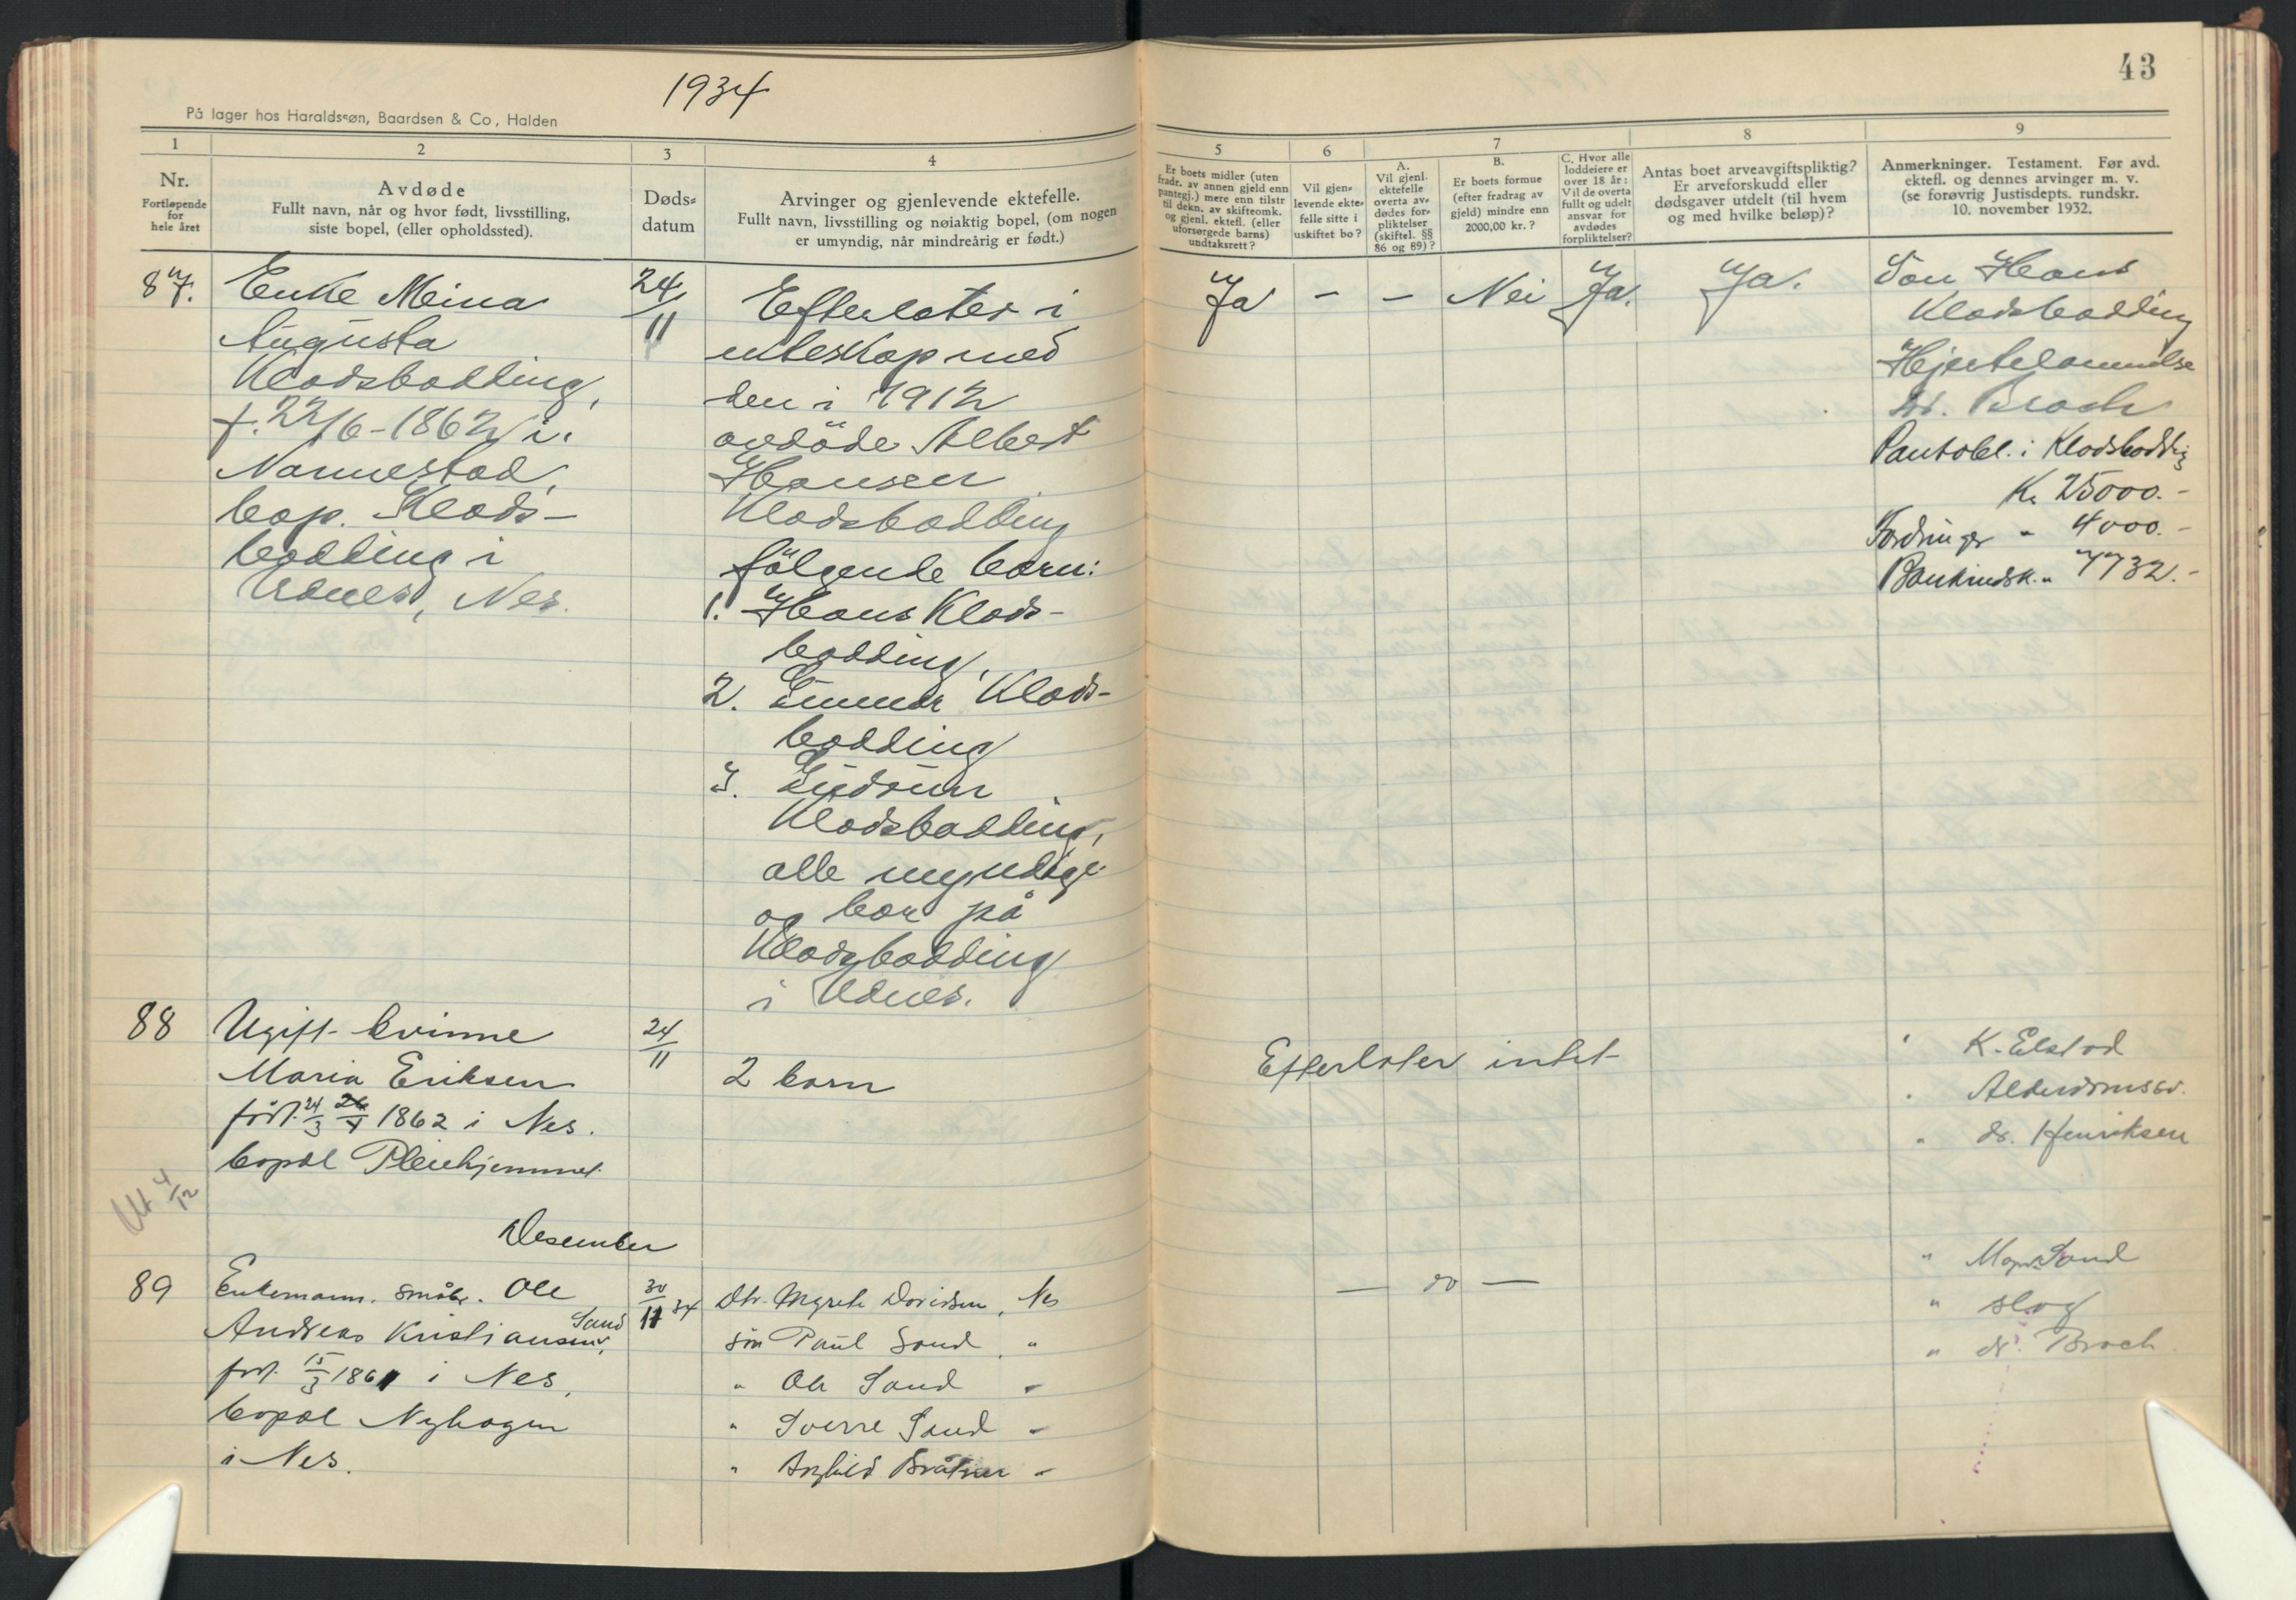 1934
43
På lager hos Haraldssøn, Baardsen & Co, Halden
1
2
3
4
5
6
7
8
9
Nr.
Fortløpende
for
hele året
Avdøde
Fullt navn, når og hvor født, livsstilling,
siste bopel, (eller opholdssted).
Døds-
datum
Arvinger og gjenlevende ektefelle.
Fullt navn, livsstilling og nøiaktig bopel, (om nogen
er umyndig, når mindreårig er født.)
Er boets midler (uten
fradr. av annen gjeld enn
pantegj.) mere enn tilstr
til dekn. av skifteomk.
og gjenl. ektefl. (eller
uforsørgede barns)
undtaksrett?
Vil gjen-
levende ekte-
felle sitte i
uskiftet bo?
A.
Vil gjenl.
ektefelle
overta av-
dødes for-
pliktelser
(skiftel. §§
86 og 89)?
B.
Er boets formue
(efter fradrag av
gjeld) mindre enn
2000,00 kr.?
C. Hvor alle
loddeiere er
over 18 år:
Vil de overta
fullt og udelt
ansvar for
avdødes
forpliktelser?
Antas boet arveavgiftspliktig?
Er arveforskudd eller
dødsgaver utdelt (til hvem
og med hvilke beløp)?
Anmerkninger. Testament. Før avd.
ektefl. og dennes arvinger m. v.
(se forøvrig Justisdepts. rundskr.
10. november 1932.
87.
Enke Meina
Augusta
Klodsbodding,
f. 22/6-1862 i
Nannestad,
bop. Klods-
bodding i
Udnes, Nes.
24/11
Efterlater i
ekteskap med
den i 1912
avdöde Albert
Hansen
Klodsbodding
fölgende barn:
1. Hans Klods-
bodding,
2. Gunnar Klods-
bodding
3. Gudrun
Klodsbodding,
alle myndige
og bor på
Klodsbodding
i Udnes.
Ja
-
-
Nei
Ja.
Ja.
Søn Hans
Klodsbodding
Hjertelammelse
Dr. Broch
Pantobl. i Klodsbodding
Kr 25000.-
Fordringer " 4000.-
Bankindsk. " 7732.-
88
Ugift kvinne
Maria Eriksen
født 24/3 1862 i Nes.
bopæl Pleiehjemmet
24/11
2 barn
Efterlater intet
" K. Elstad
" Alderdomssv.
" dr. Henriksen
4/12
Desember
89
Enkemann. småbr. Ole
Andreas Kristiansen Sand,
født 15/3 1861 i Nes,
bopæl Nyhagen
i Nes.
30/11 34
Dtr. Myrete Davidsen, Nes
søn Paul Sand, "
" Ole Sand "
" Sverre Sand "
" Bråtner "
— do —
" Sand
" slag
" dr. Broch